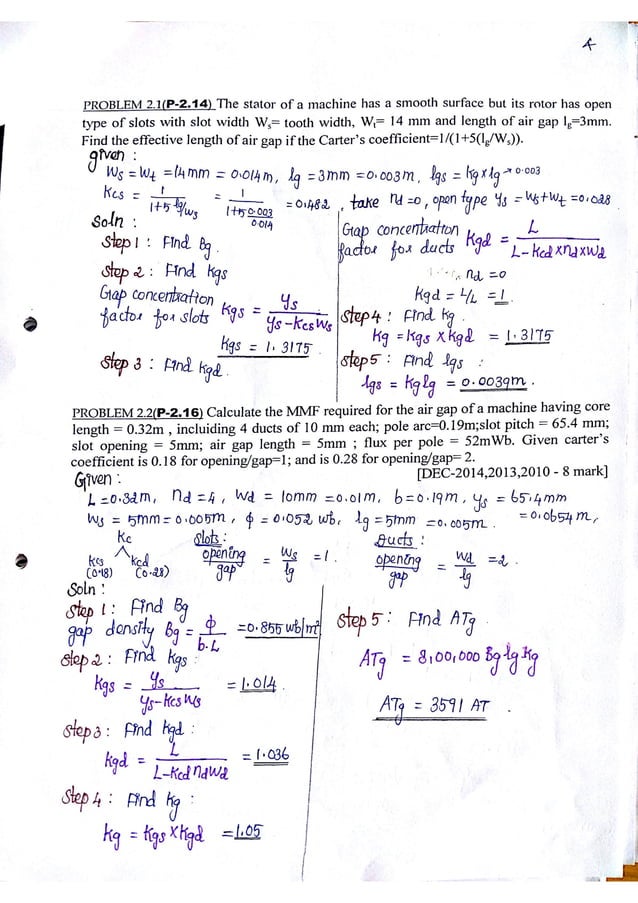 A
PROBLEM 2.1(P-2.14) The stator of a machine has a smooth surface but its rotor has open
type of slots with slot width Ws= tooth width, Wt= 14 mm and length of air gap lg=3mm.
Find the effective length of air gap if the Carter's coefficient=1/(1+5(lg/Ws)).
given :
Ws = Wt = 14mm = 0.014m, lg = 3mm = 0.003m, lgs = kg x lg → 0.003
Kcs = 1/(1+5 lg/ws) = 1/(1+5 0.003/0.014) = 0.482, take nd = 0, open type ys = Ws+Wt = 0.028
Soln :
Step 1 : Find Bg.
Step 2 : Find Kgs
Gap concentration
factor for slots Kgs = ys/(ys-KcsWs)
Kgs = 1.3175
Step 3 : Find Kgd.
Gap concentration
factor for ducts Kgd = L/(L-Kcd x nd x wd)
nd = 0
Kgd = L/L = 1.
Step 4 : Find kg.
Kg = Kgs x Kgd = 1.3175
Step 5 : Find lgs :
lgs = Kg lg = 0.0039m.
PROBLEM 2.2(P-2.16) Calculate the MMF required for the air gap of a machine having core
length = 0.32m , incluiding 4 ducts of 10 mm each; pole arc=0.19m;slot pitch = 65.4 mm;
slot opening = 5mm; air gap length = 5mm ; flux per pole = 52mWb. Given carter's
coefficient is 0.18 for opening/gap=1; and is 0.28 for opening/gap= 2.
[DEC-2014,2013,2010 - 8 mark]
Given :
L = 0.32m, nd = 4, Wd = 10mm = 0.01m, b = 0.19m, ys = 65.4mm
= 0.0654m,
Ws = 5mm = 0.005m, φ = 0.052 wb, lg = 5mm = 0.005m.
Kc
Kcs (0.18) Kcd (0.28)
slots :
opening/gap = Ws/lg = 1.
Ducts :
opening/gap = Wd/lg = 2
Soln :
Step 1 : Find Bg
gap density Bg = φ/b.L = 0.855 wb/m²
Step 2 : Find Kgs :
Kgs = ys/(ys-KcsWs) = 1.014
Step 3 : Find Kgd :
Kgd = L/(L-Kcd nd Wd) = 1.036
Step 4 : Find Kg :
Kg = Kgs x Kgd = 1.05
Step 5 : Find ATg
ATg = 8,00,000 Bg lg Kg
ATg = 3591 AT .